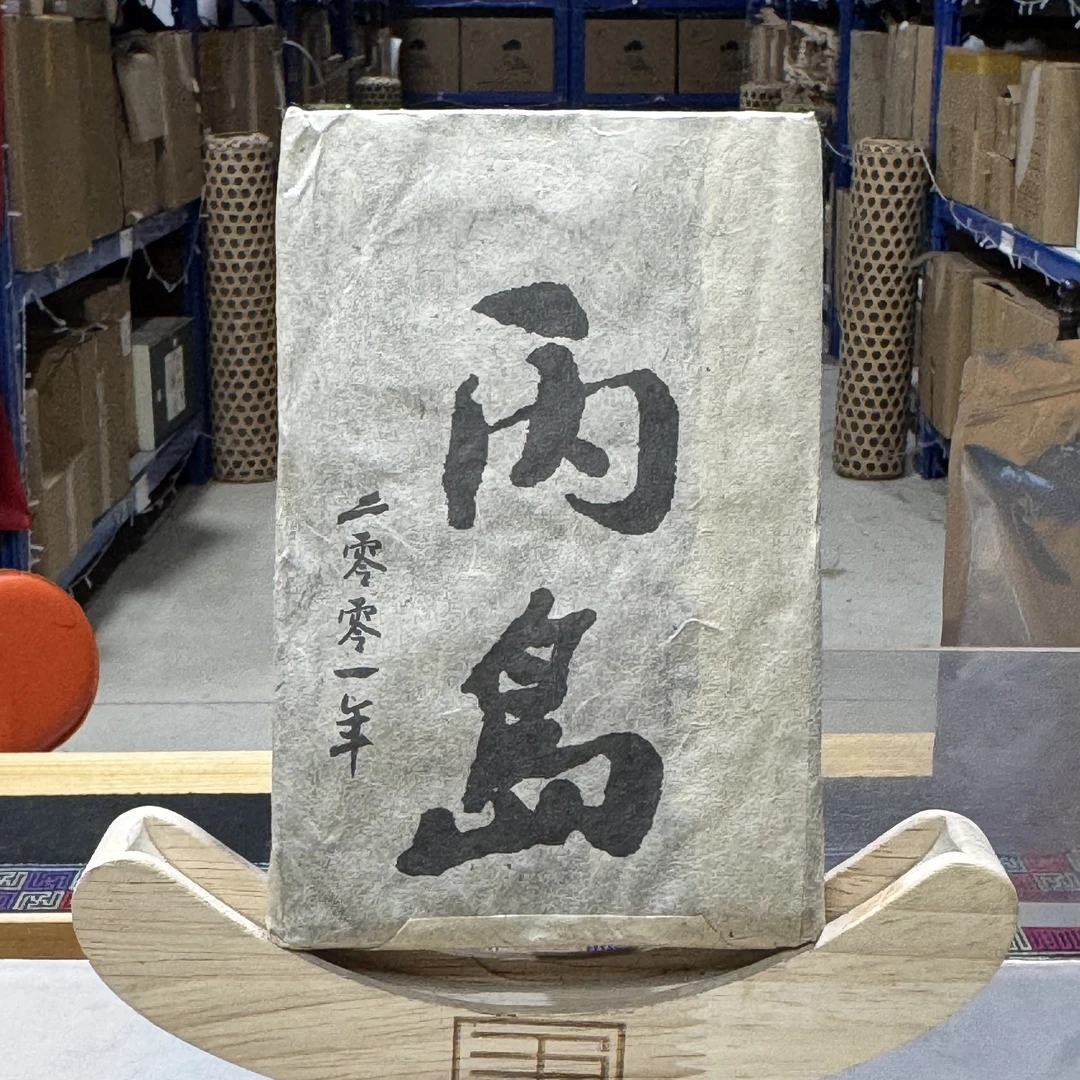 丙島
二零零一年